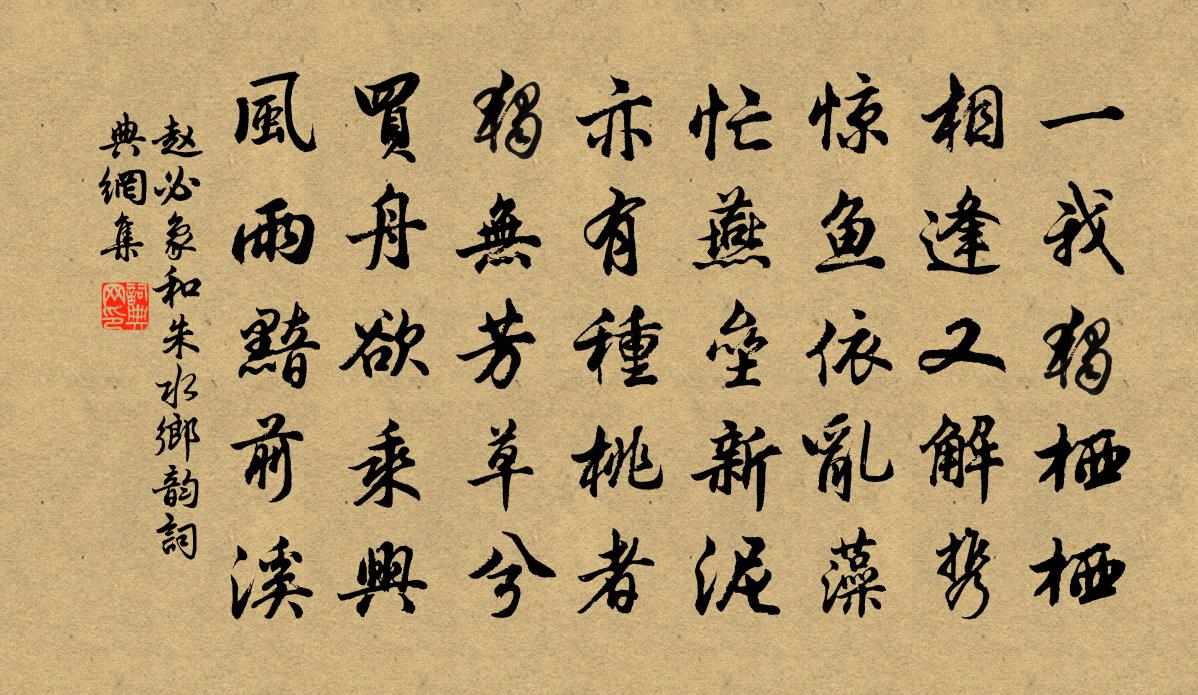 一我獨栖栖
相逢又解携
惊鱼依亂藻
忙燕壘新泥
亦有種桃者
獨無芳草兮
買舟欲乘興
風雨黯前溪
赵必象和朱水鄉韵詞
典網集
詞典
网印